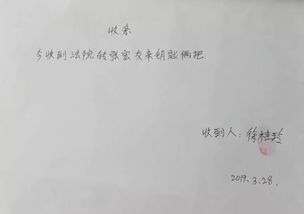 收条
今收到法院转张宏交来钥匙俩把
收到人:徐桂玲
2019.3.28.